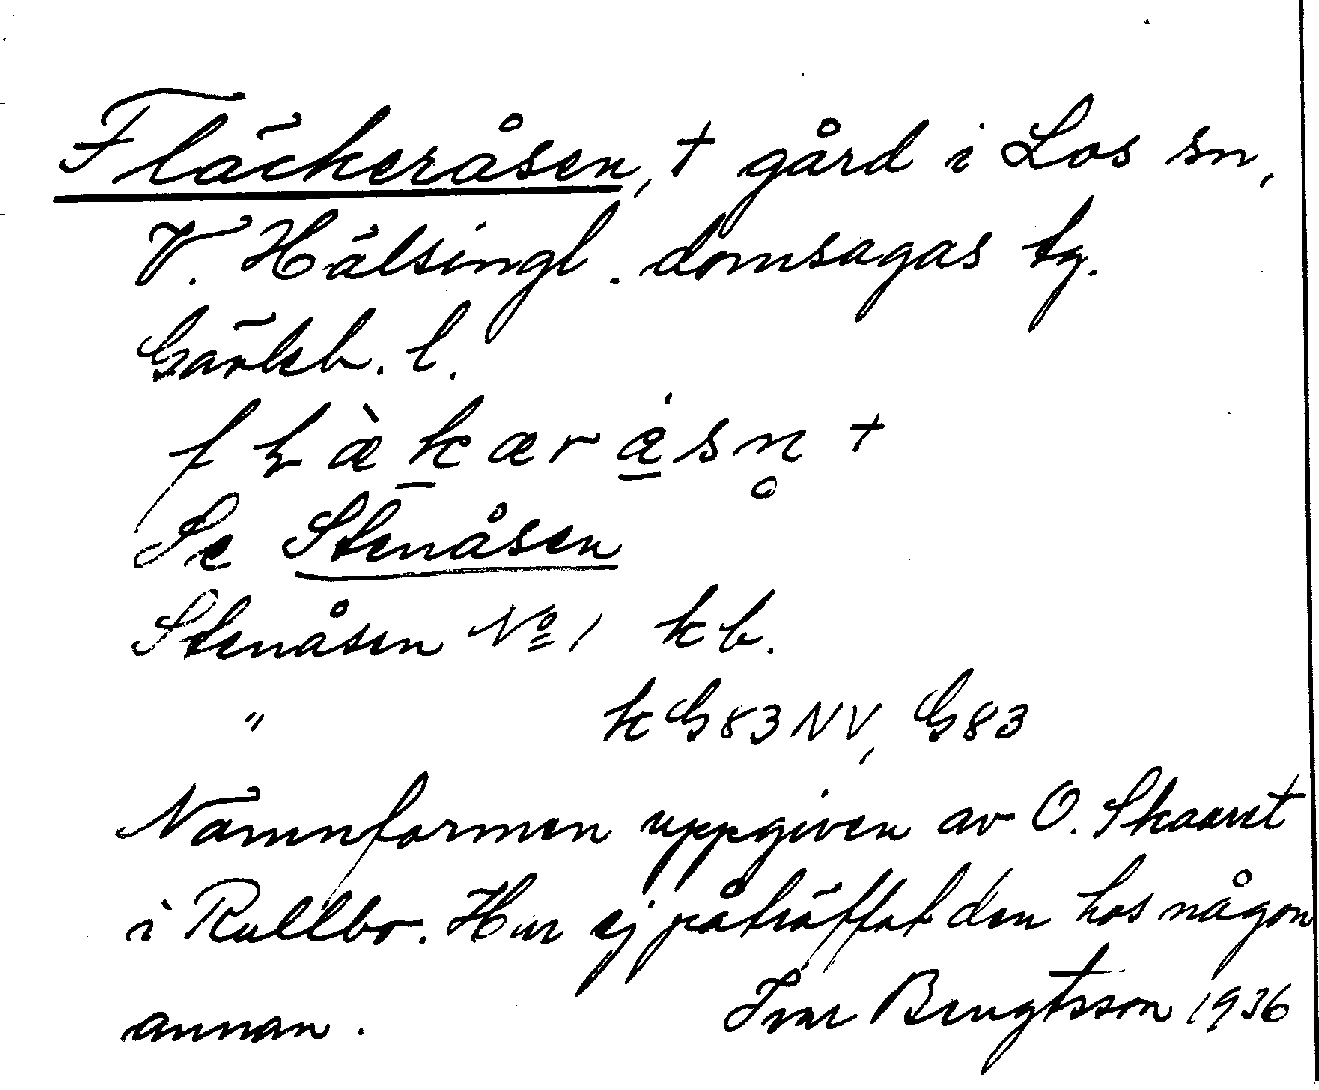 Fläckeråsen, † gård i Los sn,
V. Hälsingl. domsagas tg.
Gävleb. l.
Se Stenåsen
Stenåsen № 1 kb.
" k G83NV, G83
Namnformen uppgiven av O. Skaaret
i Rullbo. Har ej påträffat den hos någon
annan. Ivar Bengtsson 1936